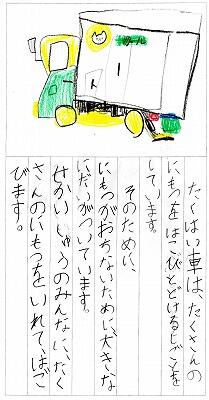 クール
たくはい車は、たくさんの
にもつをはこびとどけるしごとを
しています。
そのために、
にもつがおちないために、大きな
にだいがついています。
せかいじゅうのみんなに、たく
さんのにもつをいれて、はこ
びます。